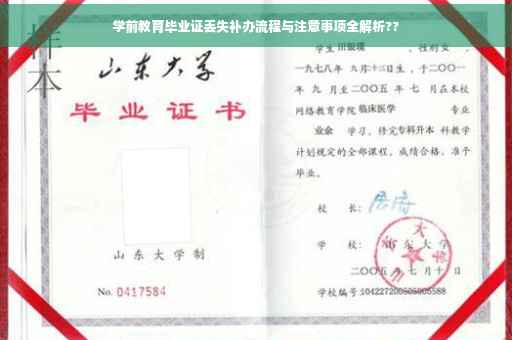 学前教育毕业证丢失补办流程与注意事项全解析??
样本
山东大学
毕业证书
山东大学制
No. 0417584
学生 田银瑛 ，性别 女 ，
一九七八年 九月十三日生，于二〇〇一
年 九 月至二〇〇五 年 七 月在本校
网络教育学院 临床医学 专业
业余 学习，修完专科升本 科教学
计划规定的全部课程，成绩合格，准予
毕业。
校 长：
学 校：山东大学
二〇〇五 年 七 月 十 日
学校编号:104227200505005588